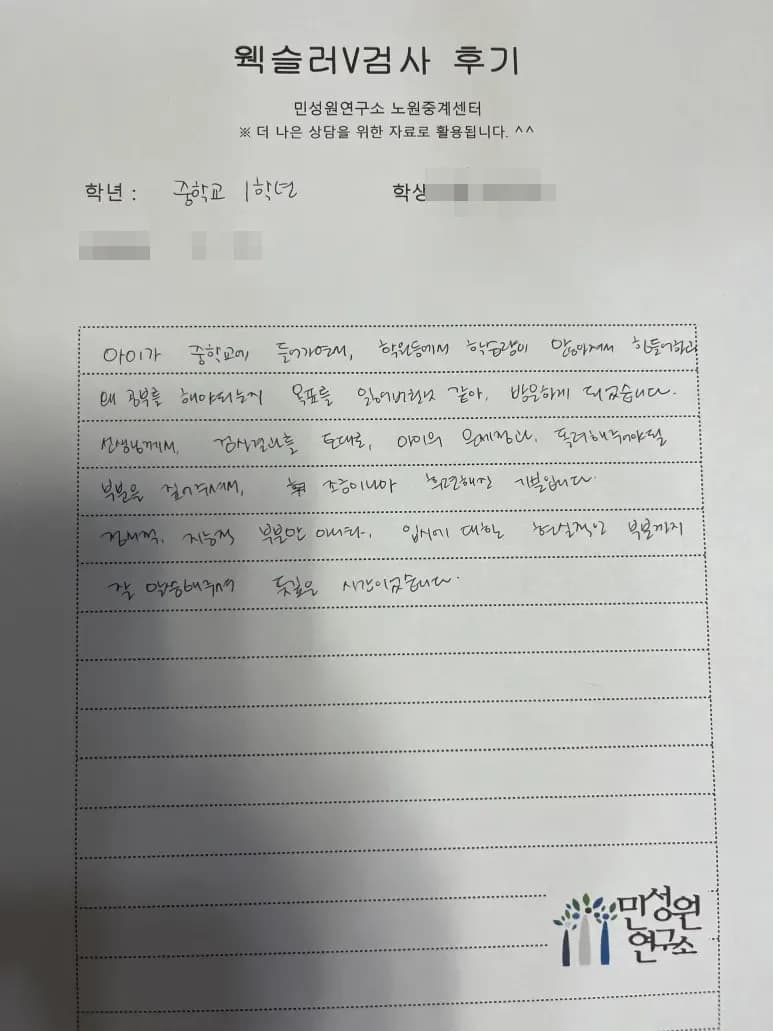 웩슬러V검사 후기
민성원연구소 노원중계센터
※ 더 나은 상담을 위한 자료로 활용됩니다. ^^
학년 : 중학교 1학년 학생
아이가 중학교에 들어가면서, 학원등에서 학습량이 많아져서 힘들어하고
왜 공부를 해야되는지 목표를 잃어버린것 같아, 방문하게 되었습니다.
선생님께서, 검사결과를 토대로, 아이의 문제점과, 독려해주어야될
부분을 짚어주셔서, 조금이나마 후련해진 기분입니다.
정서적, 지능적 부분만 아니라, 입시에 대한 현실적인 부분까지
잘 말씀해주셔 뜻깊은 시간이었습니다.
민성원
연구소